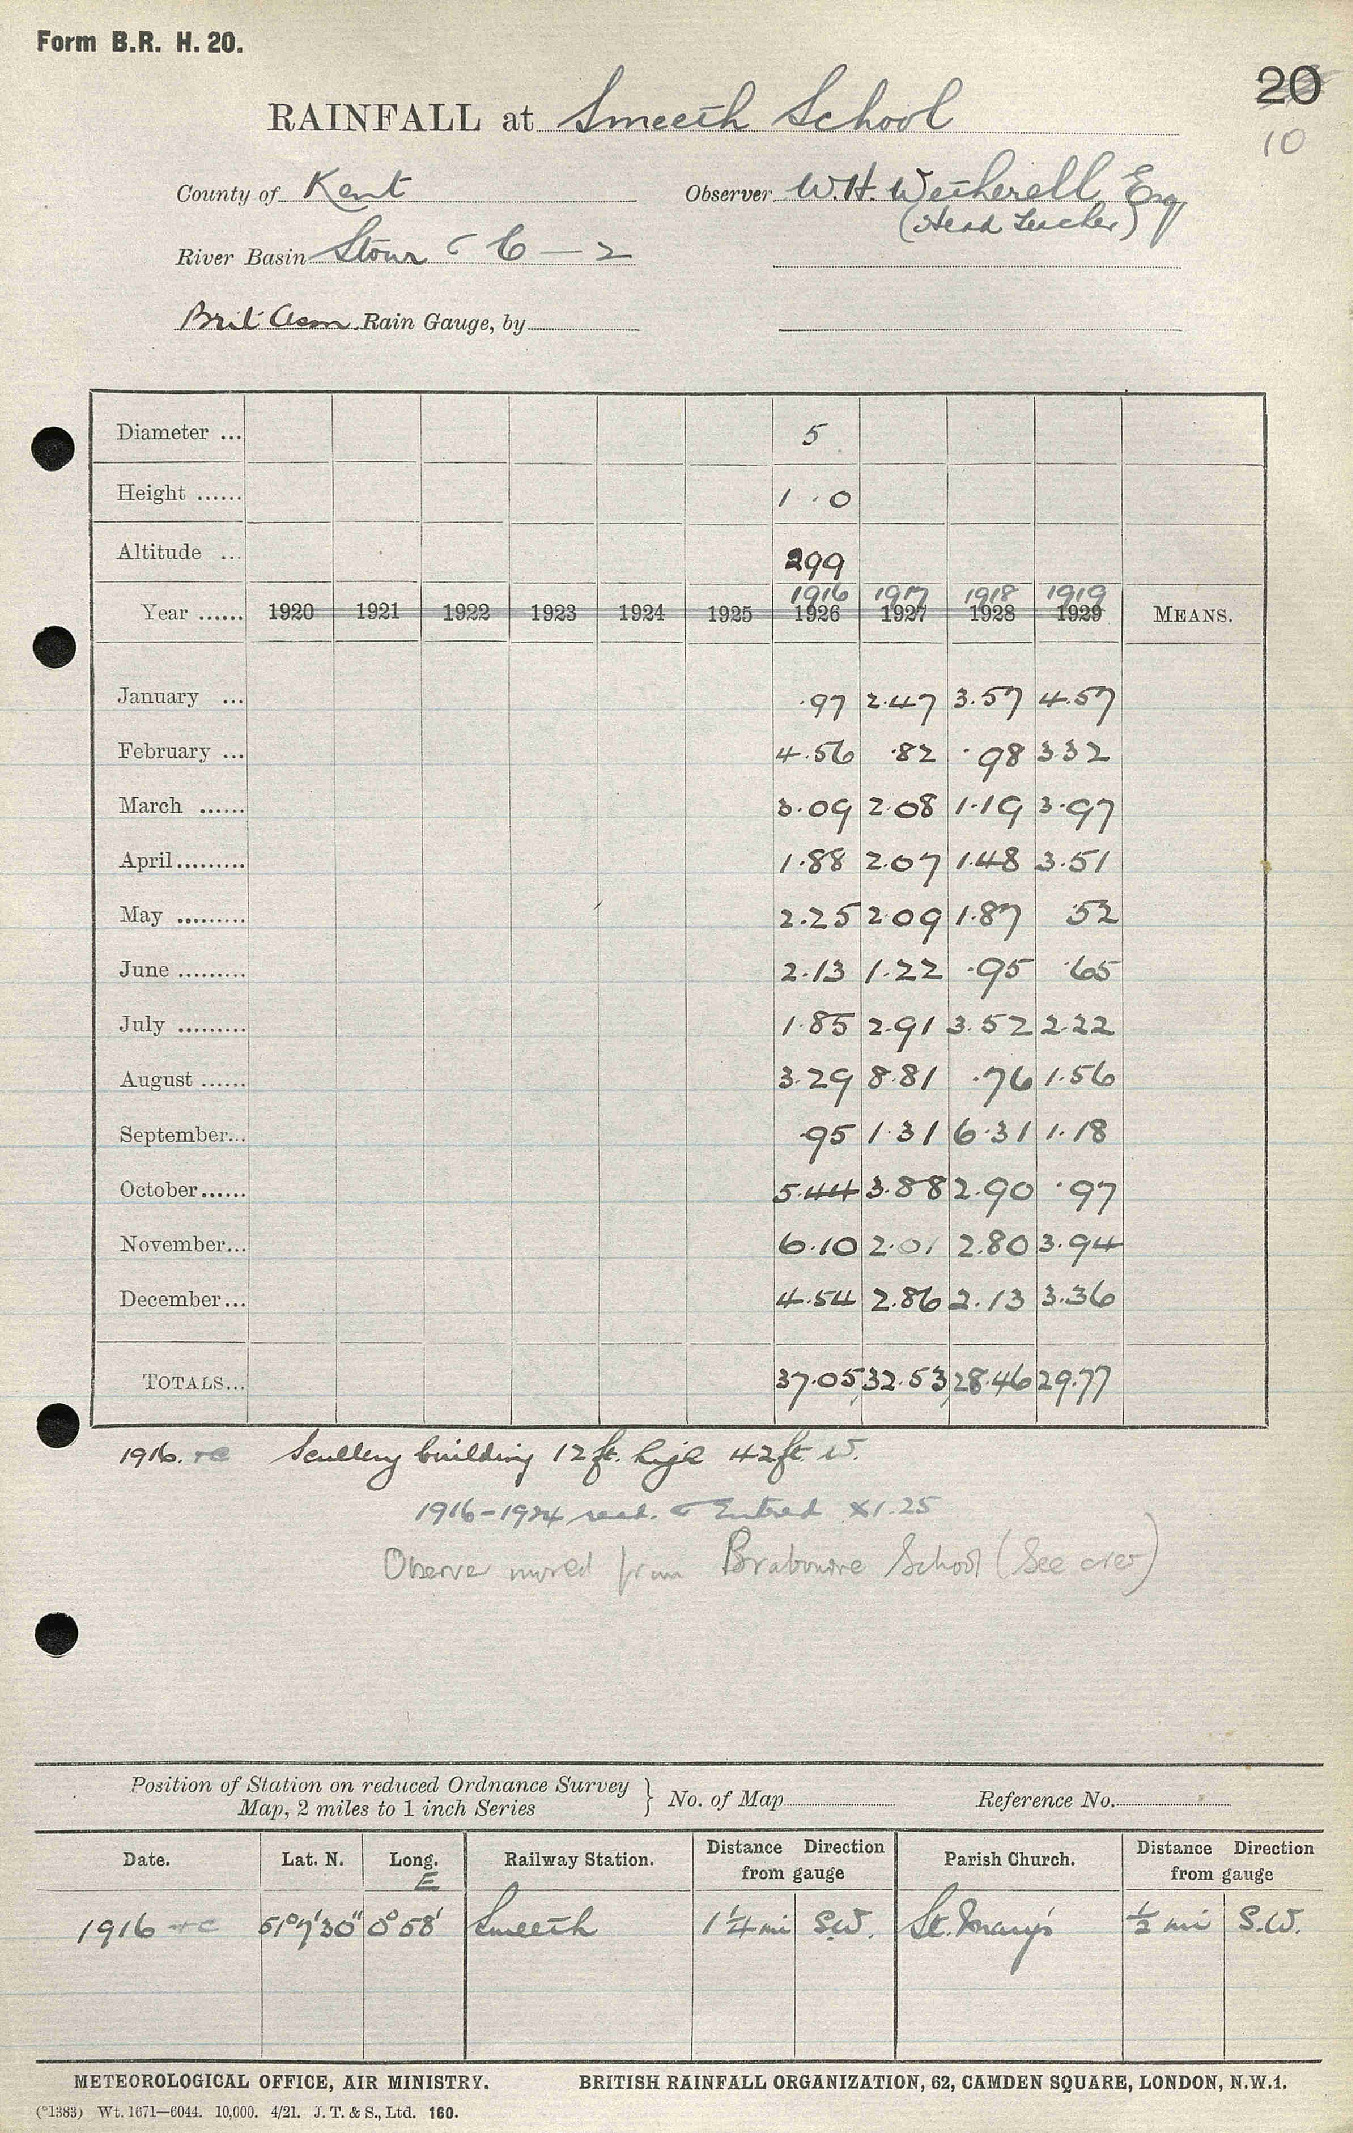 Form B.R. H. 20.
20
10
RAINFALL at Smeeth School
County of Kent Observer W.H. Wetherell Esq
(Head Teacher)
River Basin Stour C - 2
Brit Assn. Rain Gauge, by
Diameter ... 5
Height ...... 1 . 0
Altitude ... 299
1916 1917 1918 1919
Year ...... 1920 1921 1922 1923 1924 1925 1926 1927 1928 1929 MEANS.
January ... .97 2.47 3.57 4.57
February ... 4.56 .82 .98 3.32
March ...... 3.09 2.08 1.19 3.97
April......... 1.88 2.07 1.48 3.51
May ......... 2.25 2.09 1.87 .52
June ......... 2.13 1.22 .95 .65
July ......... 1.85 2.91 3.52 2.22
August ...... 3.29 8.81 .76 1.56
September... .95 1.31 6.31 1.18
October...... 5.44 3.88 2.90 .97
November... 6.10 2.01 2.80 3.94
December... 4.54 2.86 2.13 3.36
TOTALS... 37.05 32.53 28.46 29.77
1916. Scullery building 12 ft. high 42 ft W.
1916-1924 Entred x1.25
Observer moved from Brabourne School (See over)
Position of Station on reduced Ordnance Survey
Map, 2 miles to 1 inch Series } No. of Map Reference No.
Date. Lat. N. Long. Railway Station. Distance Direction from gauge Parish Church. Distance Direction from gauge
E
1916 51°7'30" 0°58' Smeeth 1¼ mi S.W. St. Mary's ½ mi S.W.
METEOROLOGICAL OFFICE, AIR MINISTRY. BRITISH RAINFALL ORGANIZATION, 62, CAMDEN SQUARE, LONDON, N.W.1.
(*1383) Wt. 1671—6044. 10,000. 4/21. J. T. & S., Ltd. 160.